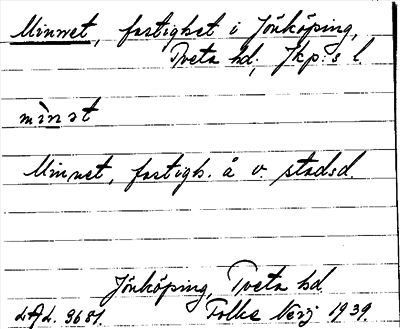 Minnet, fastighet i Jönköping,
Tveta hd, Jkp:s l.
mìnət
Minnet, fastigh. å v. stadsd.
Jönköping, Tveta hd.
LAL. 3681. Folke Nerj 1939.